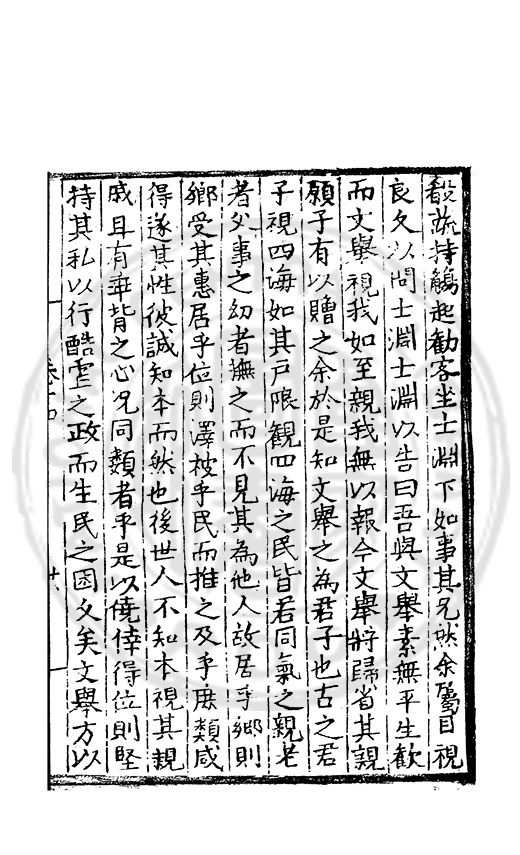 殽蔬持觴起勸客坐士淵下如事其兄然余屬目視
良久以問士淵士淵以告曰吾與文舉素無平生歡
而文舉視我如至親我無以報今文舉將歸省其親
願子有以贈之余於是知文舉之為君子也古之君
子視四海如其戶限觀四海之民皆若同氣之親老
者父事之幼者撫之而不見其為他人故居乎鄉則
鄉受其惠居乎位則澤被乎民而推之及乎庶類咸
得遂其性彼誠知本而然也後世人不知本視其親
戚且有乖背之心况同類者乎是以僥倖得位則堅
持其私以行酷虐之政而生民之困久矣文舉方以
卷十四